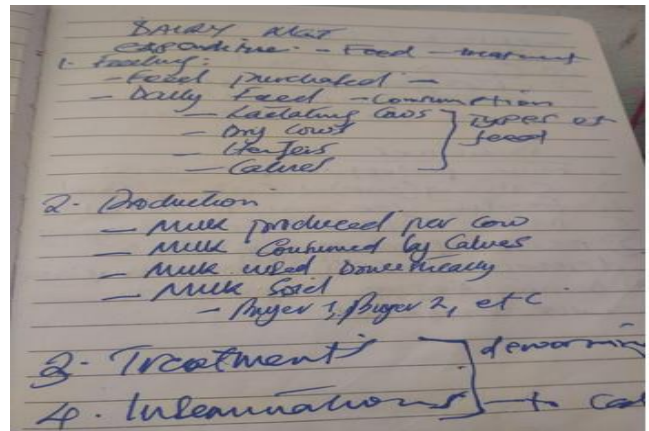 DAIRY MGT
expenditure - Feed - treatment
1. Feeding:
- Feed purchased -
- Daily Feed - Consumption
- Lactating Cows ] Types of
- Dry Cows feed
- Heifers
- Calves
2- Production
- Milk produced per Cow
- Milk Consumed by Calves
- Milk used Domestically
- Milk Sold
- Buyer 1, Buyer 2, etc.
3- Treatments
4. Inseminations